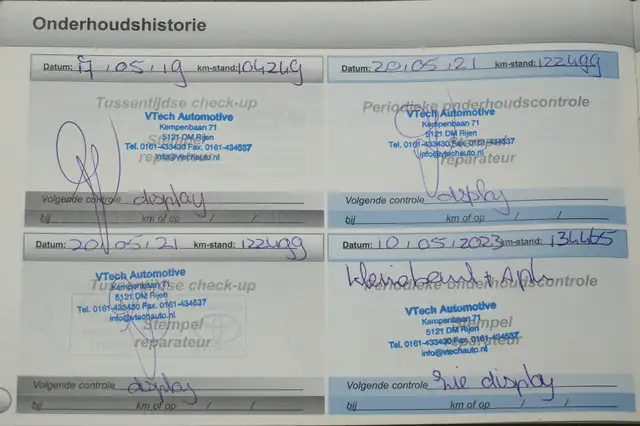 Onderhoudshistorie
Datum: 17 , 05 , 19 km-stand: 104249
Tussentijdse check-up
VTech Automotive
Kempenbaan 71
5121 DM Rijen
Tel. 0161-433430 Fax. 0161-434537
info@vtechauto.nl
Stempel
reparateur
Volgende controle display
bij km of op / /
Datum: 20,05,21 km-stand: 122499
Periodieke onderhoudscontrole
VTech Automotive
Kempenbaan 71
5121 DM Rijen
Tel. 0161-433430 Fax. 0161-434537
info@vtechauto.nl
Stempel
reparateur
Volgende controle display
bij km of op / /
Datum: 20,05,21 km-stand: 122499
Tussentijdse check-up
VTech Automotive
Kempenbaan 71
5121 DM Rijen
Tel. 0161-433430 Fax. 0161-434537
info@vtechauto.nl
Stempel
reparateur
Volgende controle display
bij km of op / /
Datum: 10,05,2023 km-stand: 134465
Periodieke onderhoudscontrole
VTech Automotive
Kempenbaan 71
5121 DM Rijen
Tel. 0161-433430 Fax. 0161-434537
info@vtechauto.nl
Stempel
reparateur
Volgende controle zie display
bij km of op / /